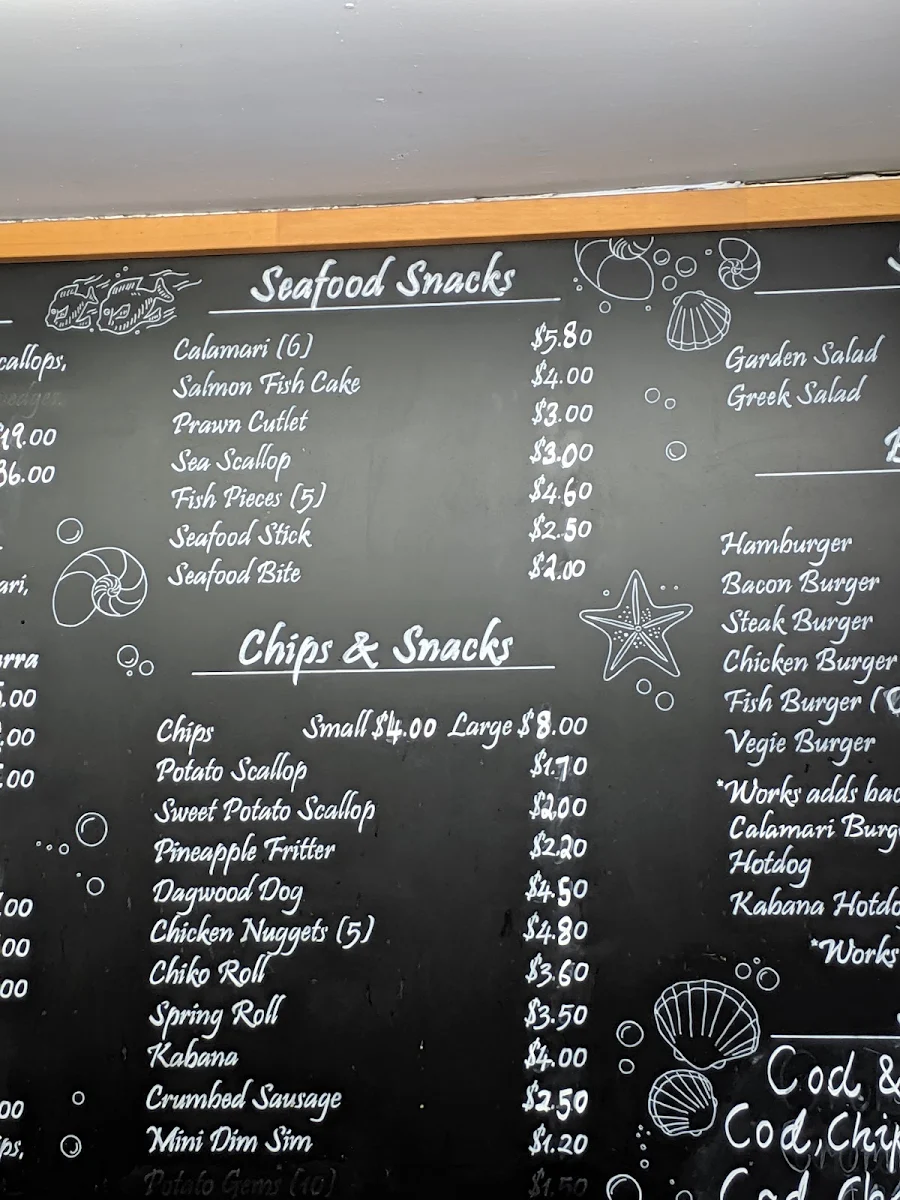 callops,
wedges.
$19.00
36.00
ari,
arra
.00
.00
.00
.00
.00
00
00
ips,
Seafood Snacks
Calamari (6) $5.80
Salmon Fish Cake $4.00
Prawn Cutlet $3.00
Sea Scallop $3.00
Fish Pieces (5) $4.60
Seafood Stick $2.50
Seafood Bite $2.00
Chips & Snacks
Chips Small $4.00 Large $8.00
Potato Scallop $1.70
Sweet Potato Scallop $2.00
Pineapple Fritter $2.20
Dagwood Dog $4.50
Chicken Nuggets (5) $4.80
Chiko Roll $3.60
Spring Roll $3.50
Kabana $4.00
Crumbed Sausage $2.50
Mini Dim Sim $1.20
Potato Gems (10) $1.50
Garden Salad
Greek Salad
Hamburger
Bacon Burger
Steak Burger
Chicken Burger
Fish Burger (
Vegie Burger
*Works adds bac
Calamari Burg
Hotdog
Kabana Hotdo
*Works
Cod &
Cod, Chip
Cod, Ch